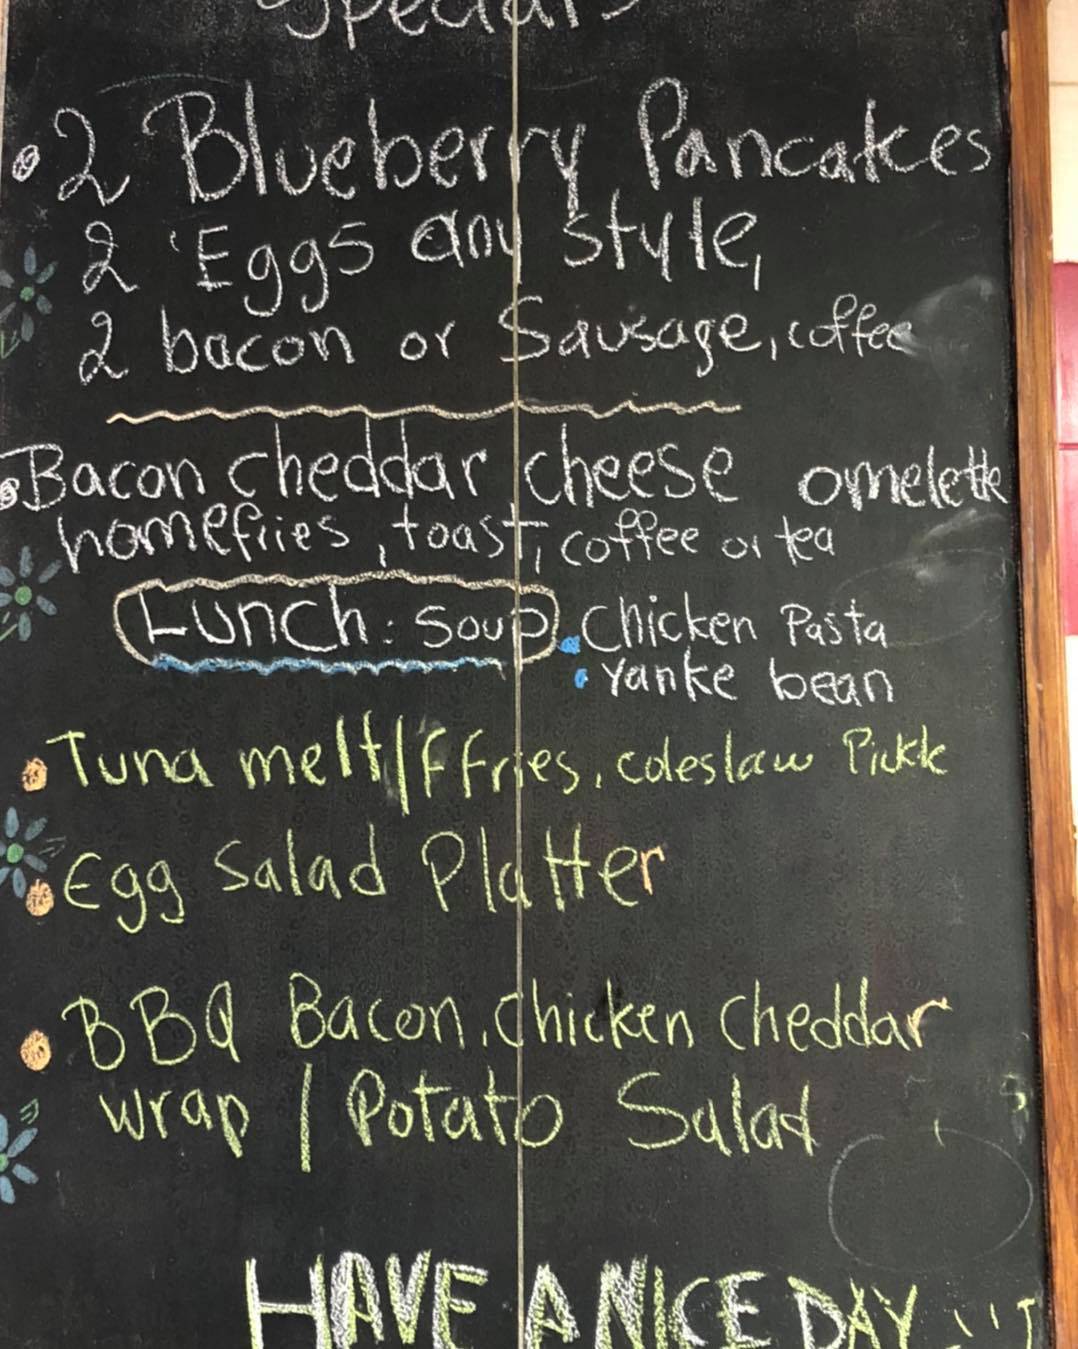 Specials
2 Blueberry Pancakes
2 Eggs any style,
2 bacon or Sausage, coffee
Bacon cheddar cheese omelette
homefries, toast, coffee or tea
Lunch: Soup • Chicken Pasta
• Yanke bean
• Tuna melt/F Fries, coleslaw Pickle
• Egg Salad Platter
• BBQ Bacon, Chicken Cheddar
wrap / Potato Salad
HAVE A NICE DAY